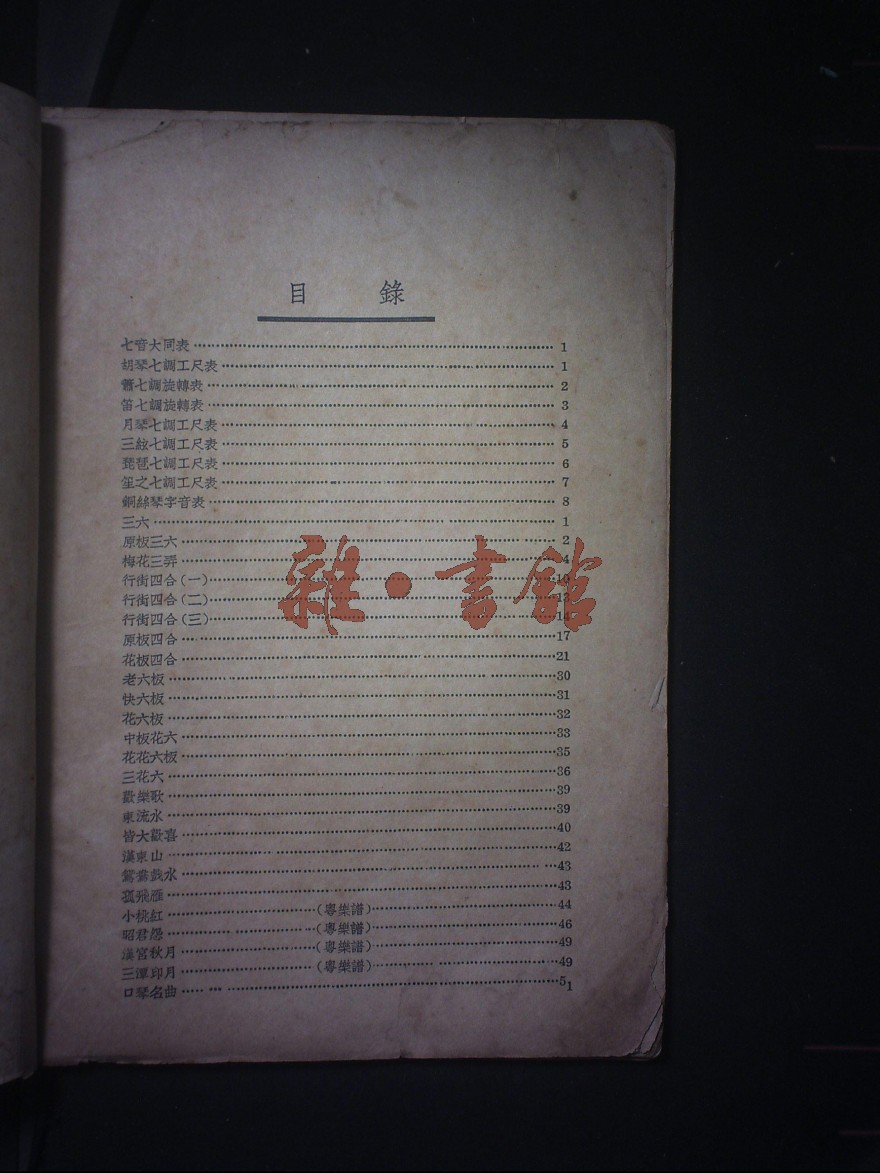 目 錄
七音大同表 1
胡琴七調工尺表 1
簫七調旋轉表 2
笛七調旋轉表 3
月琴七調工尺表 4
三絃七調工尺表 5
琵琶七調工尺表 6
笙之七調工尺表 7
銅絲琴字音表 8
三六 1
原板三六 2
梅花三弄 4
行街四合(一) 10
行街四合(二) 13
行街四合(三) 14
原板四合 17
花板四合 21
老六板 30
快六板 31
花六板 32
中板花六 33
花花六板 35
三花六 36
歡樂歌 39
東流水 39
皆大歡喜 40
漢東山 42
鴛鴦戲水 43
孤飛雁 43
小桃紅 (粵樂譜) 44
昭君怨 (粵樂譜) 46
漢宮秋月 (粵樂譜) 49
三潭印月 (粵樂譜) 49
口琴名曲 51
雜·書館